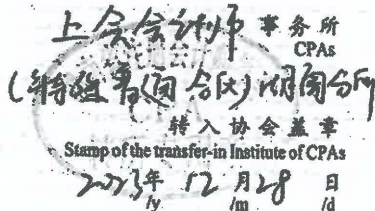 上会会计师事务所
CPAs
(特殊普通合伙)湖南分所
转入协会盖章
Stamp of the transfer-in Institute of CPAs
2023年12月28日
/y /m /d